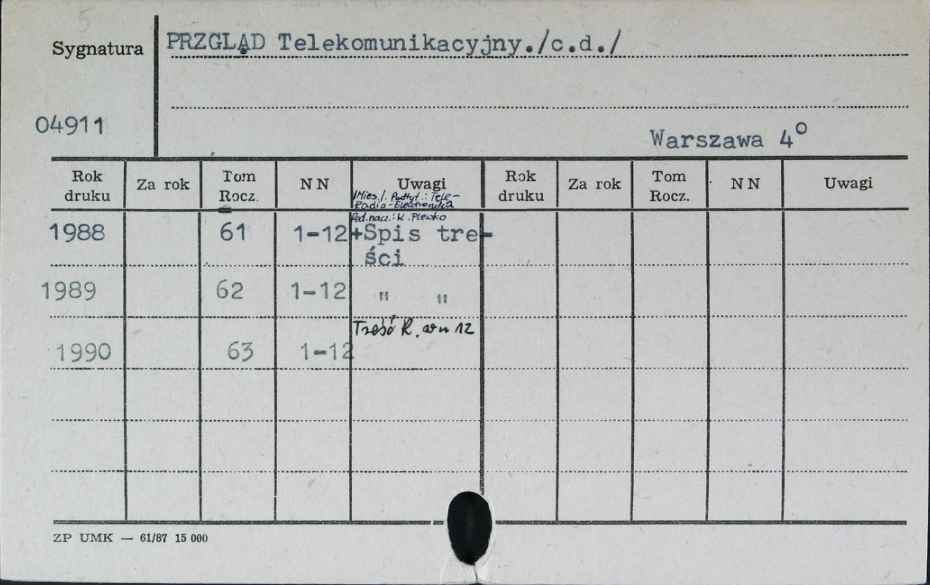 Sygnatura
PRZGLĄD Telekomunikacyjny./c.d./
04911
Warszawa 4°
Rok druku Za rok Tom Rocz. NN Uwagi Rok druku Za rok Tom Rocz. NN Uwagi
/Mies./. Podtyt.: Tele-
Radio-Elektronika
Red.nacz.: K. Plewko
1988 61 1-12 +Spis tre-
ści
1989 62 1-12 " "
Treść R. w n 12
1990 63 1-12
ZP UMK — 61/87 15 000